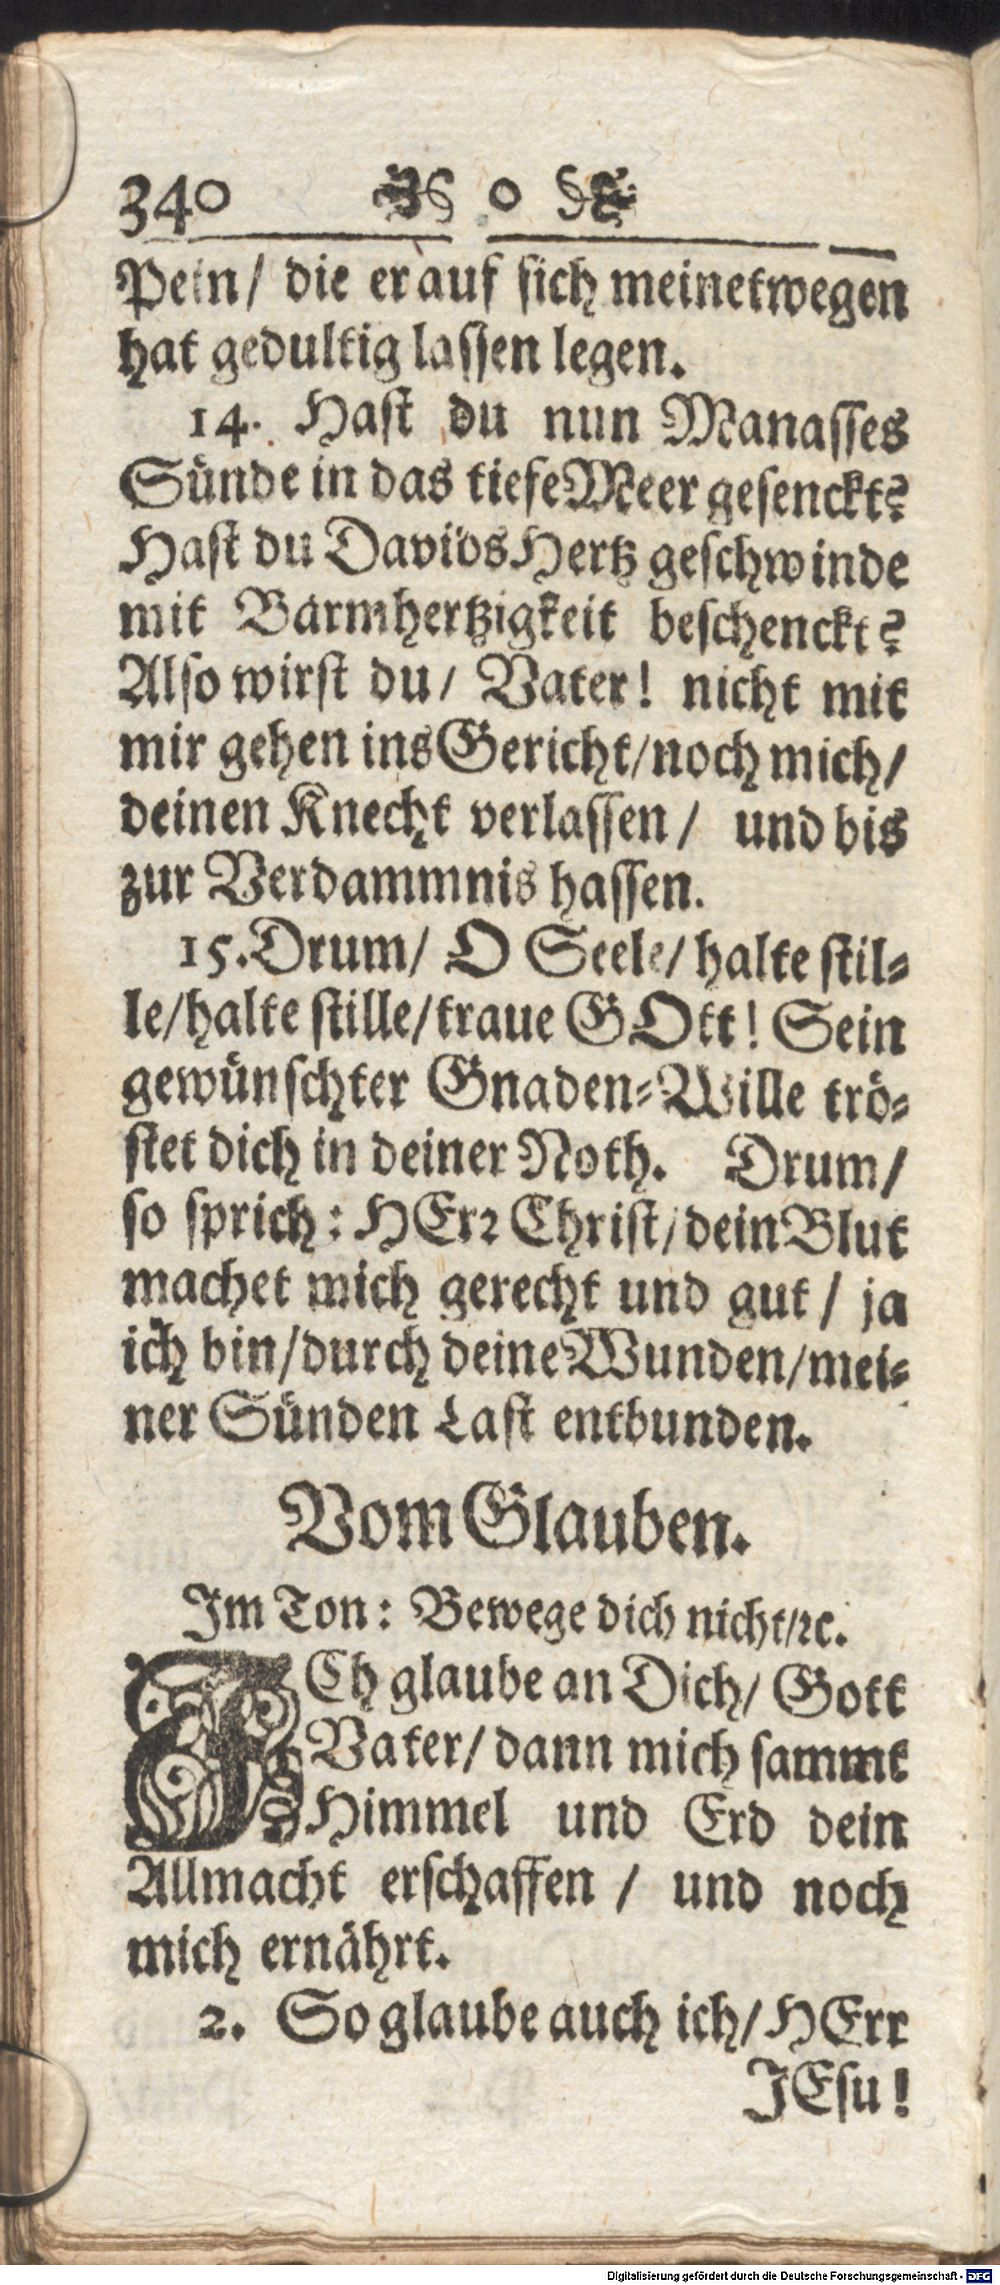 340 o
Pein/ die er auf sich meinetwegen
hat gedultig lassen legen.
14. Hast du nun Manasses
Sünde in das tiefe Meer gesenckt?
Hast du Davids Hertz geschwinde
mit Barmhertzigkeit beschenckt?
Also wirst du/ Vater! nicht mit
mir gehen ins Gericht/ noch mich/
deinen Knecht verlassen/ und bis
zur Verdammnis hassen.
15. Drum/ O Seele/ halte stil-
le/ halte stille/ traue GOtt! Sein
gewünschter Gnaden-Wille trö-
stet dich in deiner Noth. Drum/
so sprich: HErr Christ/ dein Blut
machet mich gerecht und gut/ ja
ich bin/ durch deine Wunden/ mei-
ner Sünden Last entbunden.
Vom Glauben.
Im Ton: Bewege dich nicht/ ꝛc.
ICh glaube an Dich/ Gott
Vater/ dann mich sammt
Himmel und Erd dein
Allmacht erschaffen/ und noch
mich ernährt.
2. So glaube auch ich/ HErr
JEsu!
Digitalisierung gefördert durch die Deutsche Forschungsgemeinschaft - DFG